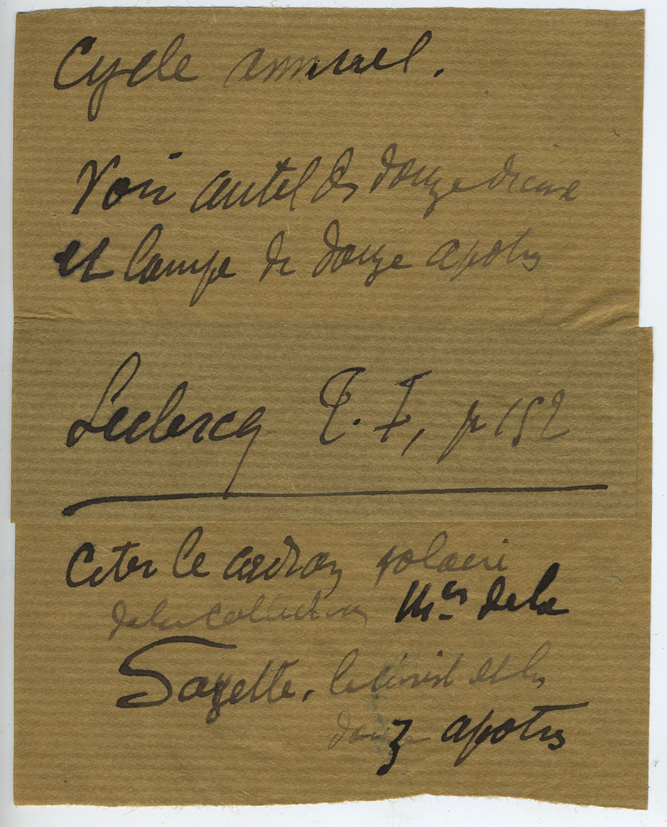 Cycle annuel.
Voir autel des douze dieux
et lampe des douze apotres
Leclercq T. I, p 152
Citer le cadran solaire
de la collection Mis de la
Sayette, le Christ et les
douze apotres